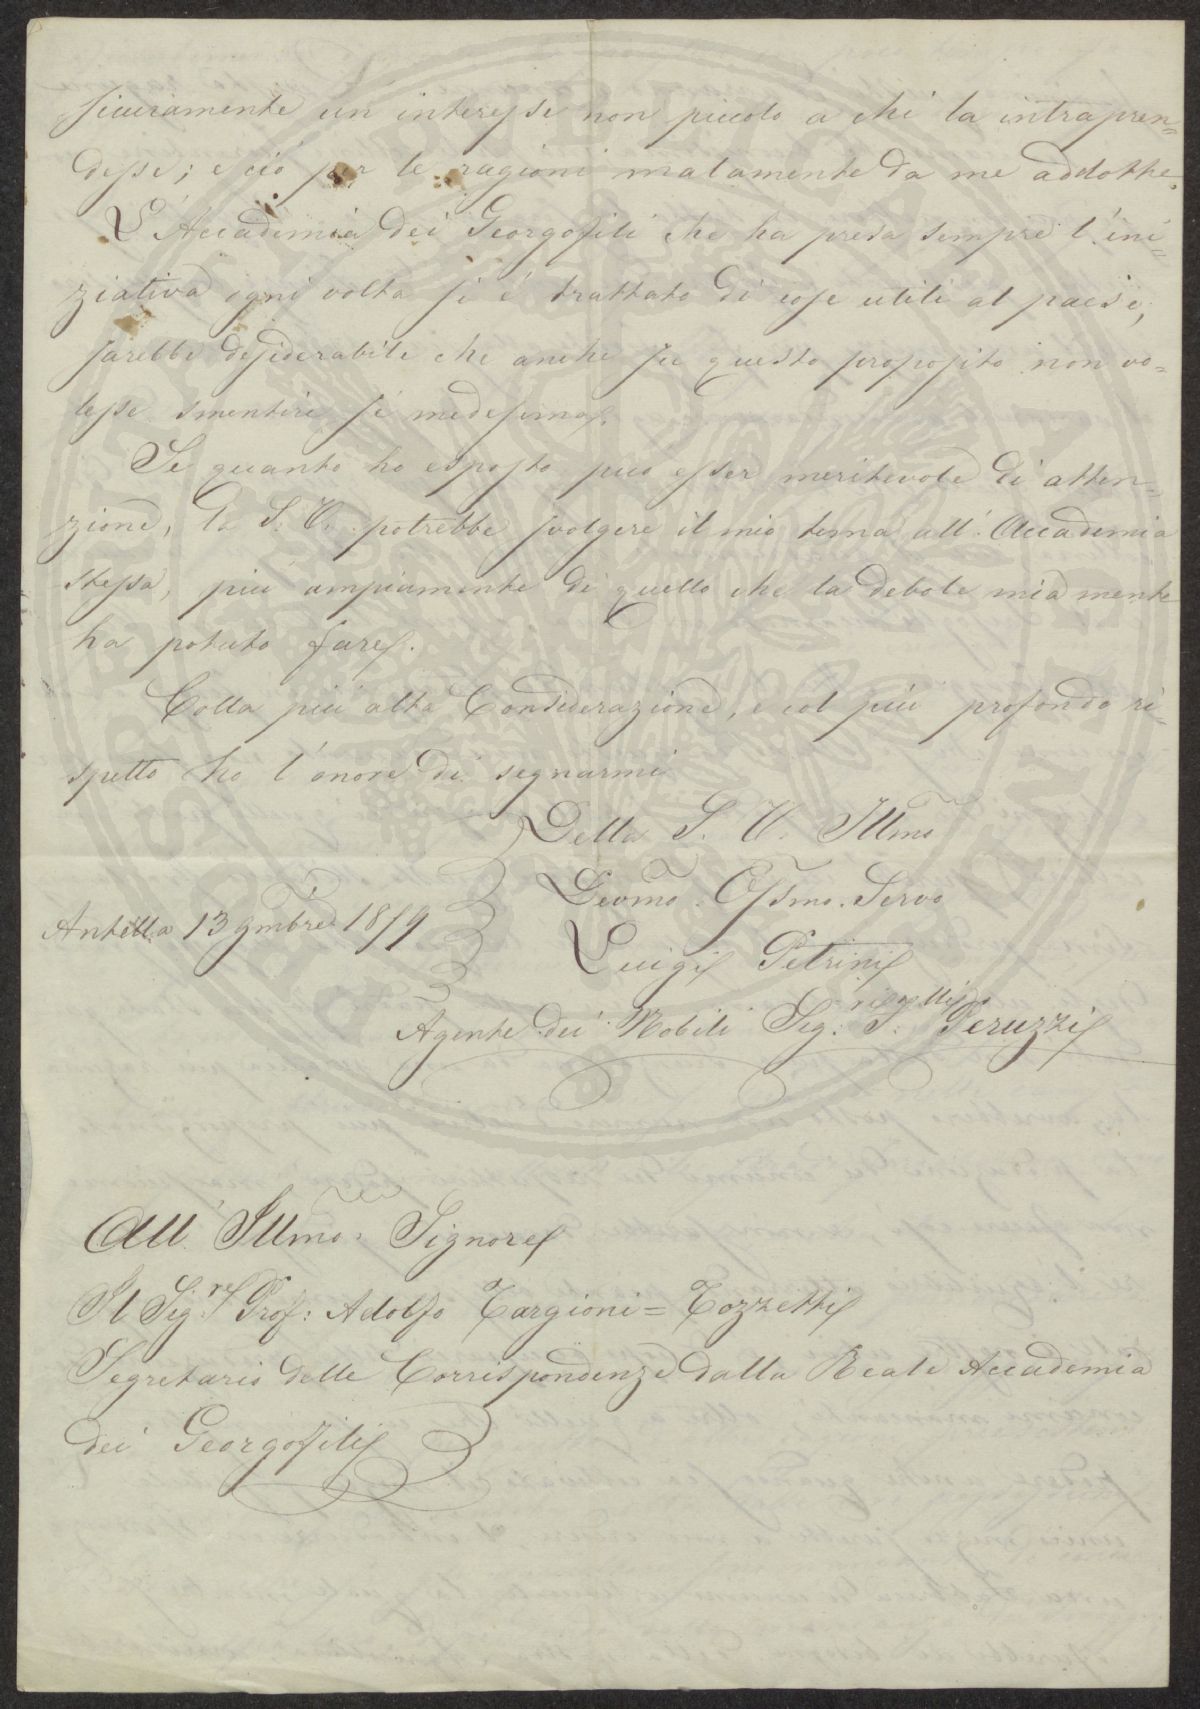 sicuramente un interesse non piccolo a chi la intrapren=
desse; e ciò per le ragioni malamente da me addotte.
L'Accademia dei Georgofili che ha presa sempre l'ini=
ziativa ogni volta si è trattato di cose utili al paese,
sarebbe desiderabile che anche su questo proposito non vo=
lesse smentire sé medesima.
Se quanto ho esposto può esser meritevole di atten=
zione, la S. V. potrebbe svolgere il mio tema all'Accademia
stessa, più ampiamente di quello che la debole mia mente
ha potuto fare.
Colla più alta Considerazione, e col più profondo ri=
spetto ho l'onore di segnarmi
Della S. V. Illma
Devmo. Ossmo. Servo
Antella 13 9mbre 1879
Luigi Petrini
Agente dei Nobili Sig: Peruzzi
All' Illmo. Signore
Il Sigre Prof: Adolfo Targioni=Tozzetti
Segretario delle Corrispondenze dalla Reale Accademia
dei Georgofili